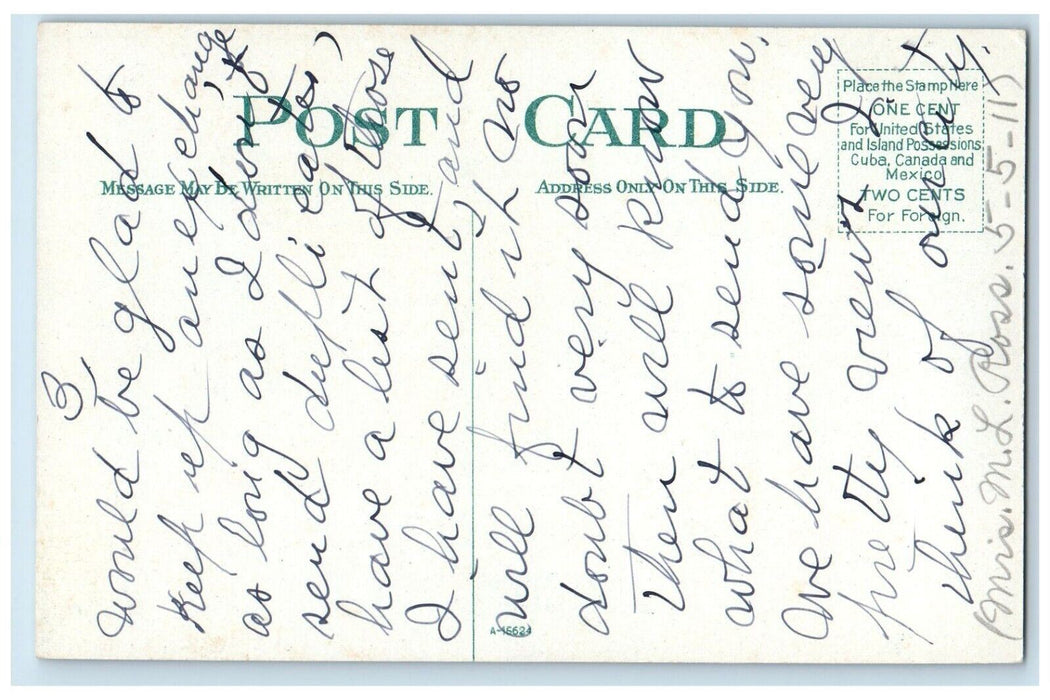 POST CARD
MESSAGE MAY BE WRITTEN ON THIS SIDE.
ADDRESS ONLY ON THIS SIDE.
Place the Stamp Here
ONE CENT
For United States
and Island Possessions
Cuba, Canada and
Mexico
TWO CENTS
For Foreign.
A-15624
3
would be glad to
keep up an exchange
as long as I don't
send duplicates,
have a list of those
I have sent, and
will find it no
doubt very soon
Then will know
what to send you.
We have some very
pretty views I
think of our city.
(Mrs. M. L. Ross. 5-5-11)